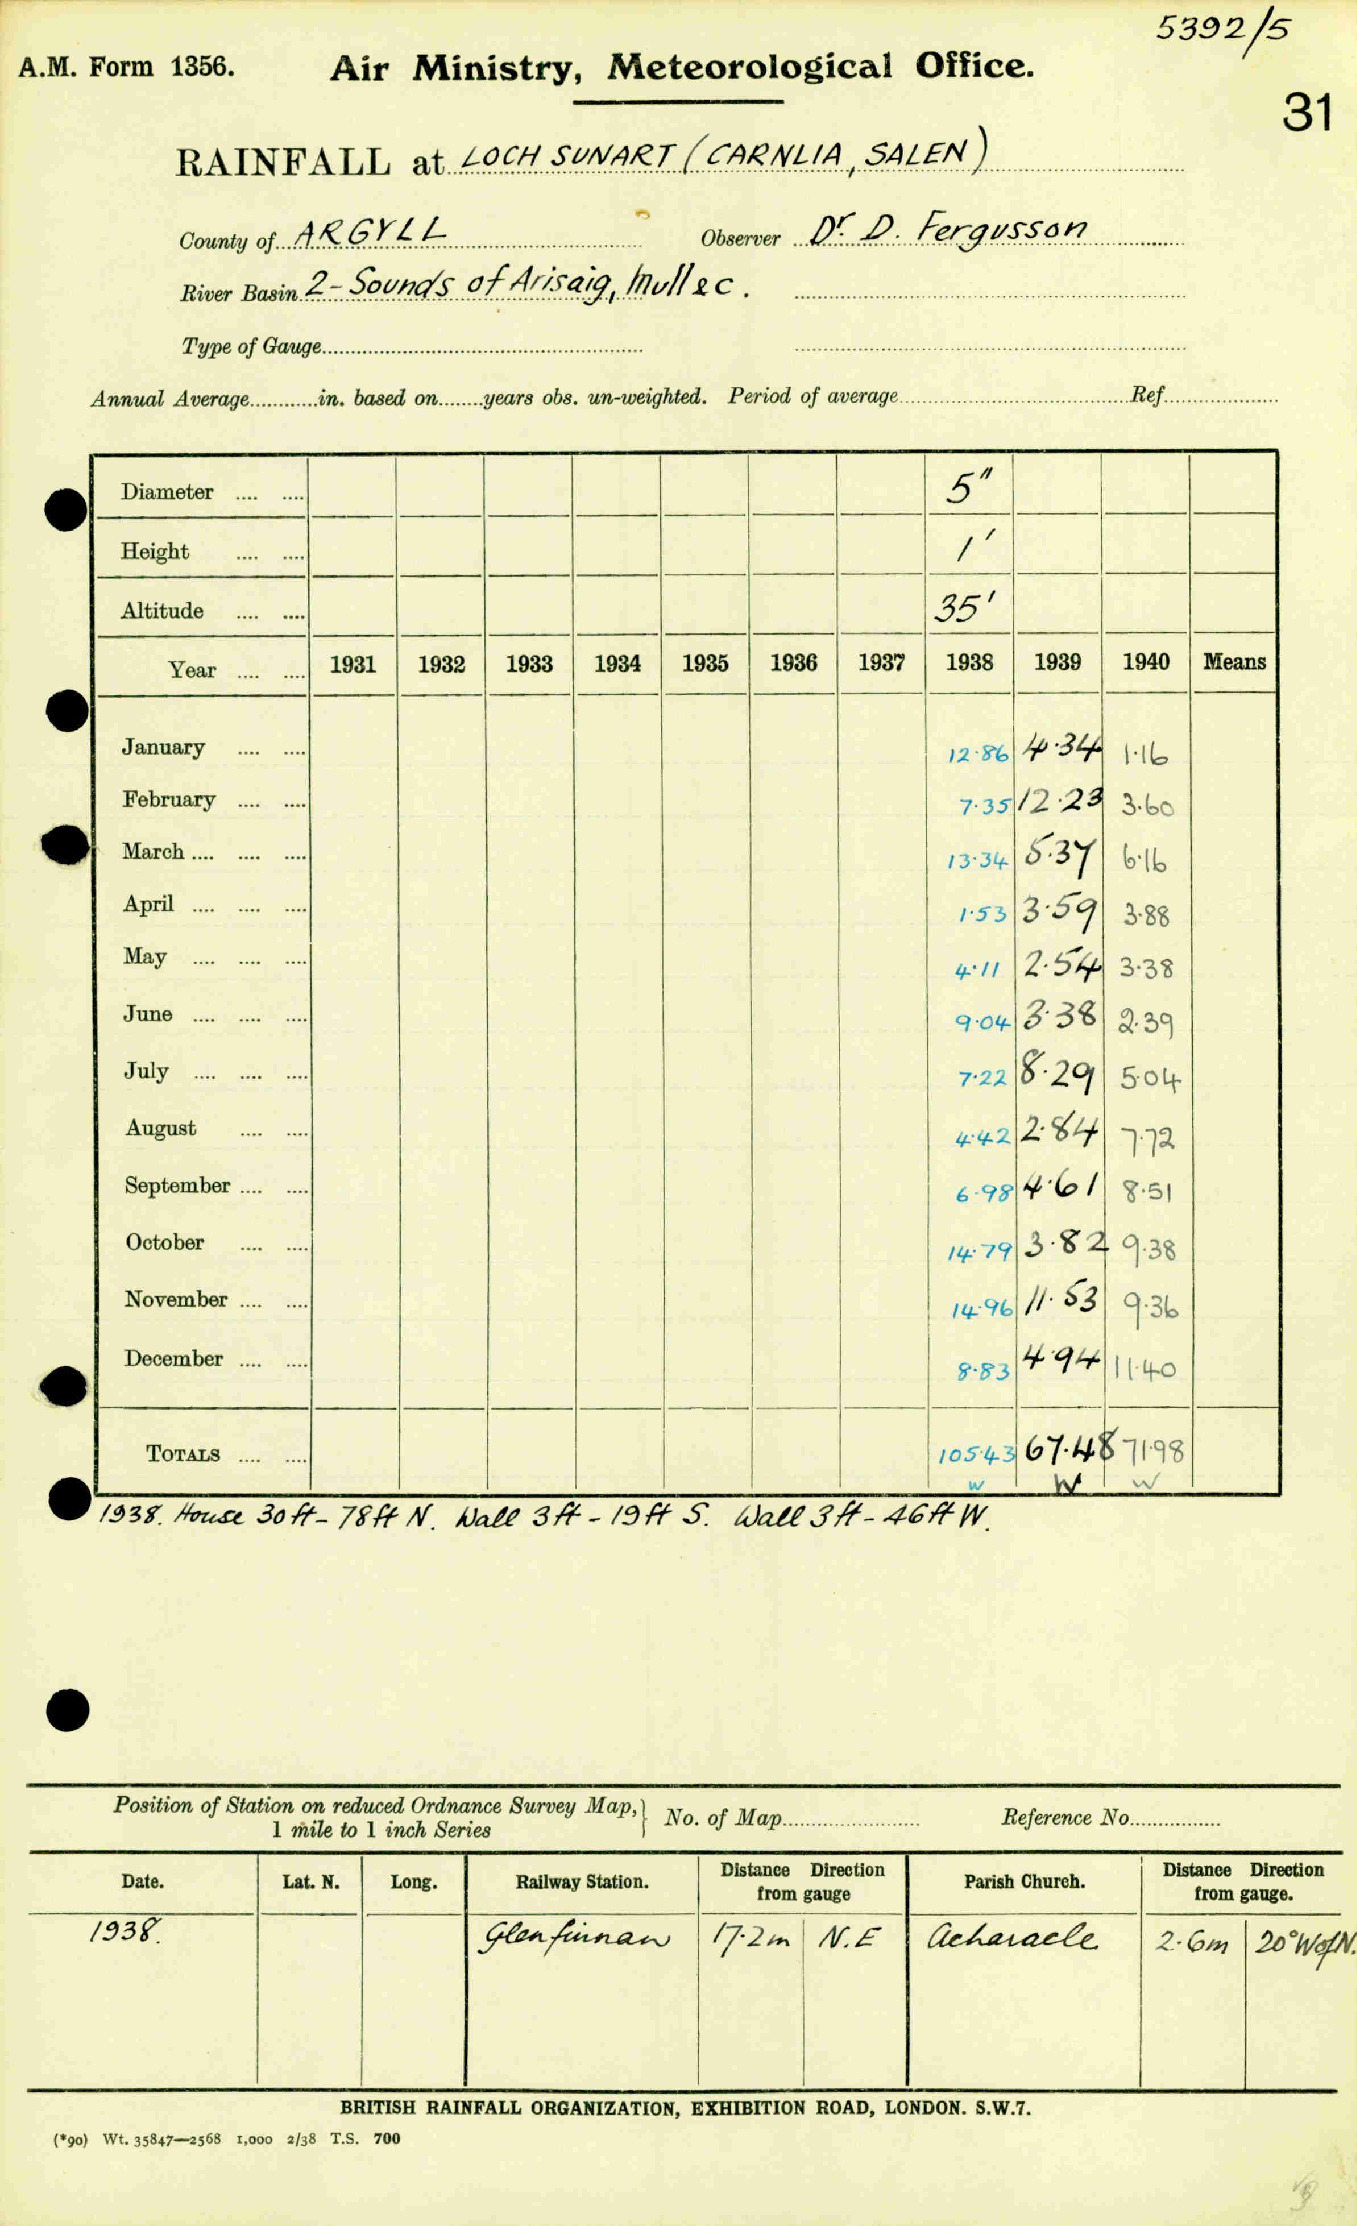 5392/5
A.M. Form 1356. Air Ministry, Meteorological Office.
31
RAINFALL at LOCH SUNART (CARNLIA, SALEN)
County of ARGYLL Observer Dr. D. Fergusson
River Basin 2-Sounds of Arisaig, Mull &c.
Type of Gauge
Annual Average in. based on years obs. un-weighted. Period of average Ref.
Diameter 5"
Height 1'
Altitude 35'
Year 1931 1932 1933 1934 1935 1936 1937 1938 1939 1940 Means
January 12.86 4.34 1.16
February 7.35 12.23 3.60
March 13.34 5.37 6.16
April 1.53 3.59 3.88
May 4.11 2.54 3.38
June 9.04 3.38 2.39
July 7.22 8.29 5.04
August 4.42 2.84 7.72
September 6.98 4.61 8.51
October 14.79 3.82 9.38
November 14.96 11.53 9.36
December 8.83 4.94 11.40
TOTALS 105.43 67.48 71.98
W W W
1938. House 30ft - 78ft N. Wall 3ft - 19ft S. Wall 3ft - 46ft W.
Position of Station on reduced Ordnance Survey Map, 1 mile to 1 inch Series } No. of Map Reference No.
Date. Lat. N. Long. Railway Station. Distance Direction from gauge Parish Church. Distance Direction from gauge.
1938. Glenfinnan 17.2m N.E Acharacle 2.6m 20° W of N.
BRITISH RAINFALL ORGANIZATION, EXHIBITION ROAD, LONDON. S.W.7.
(*90) Wt. 35847—2568 1,000 2/38 T.S. 700